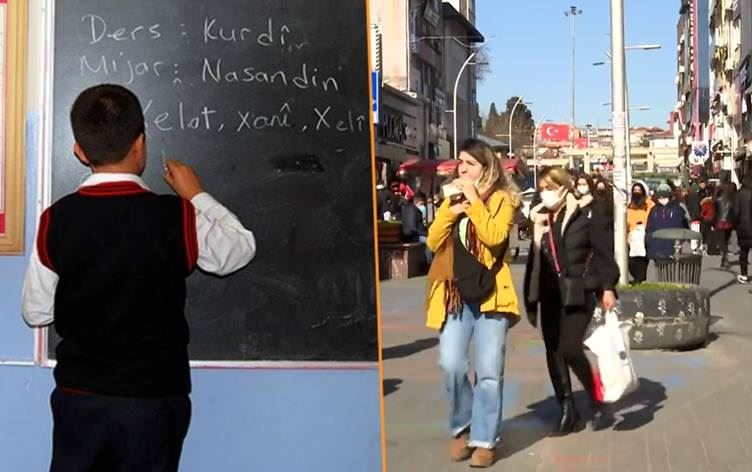 Ders : Kurdî
Mijar : Nasandin
Xelat, Xanî, Xelî